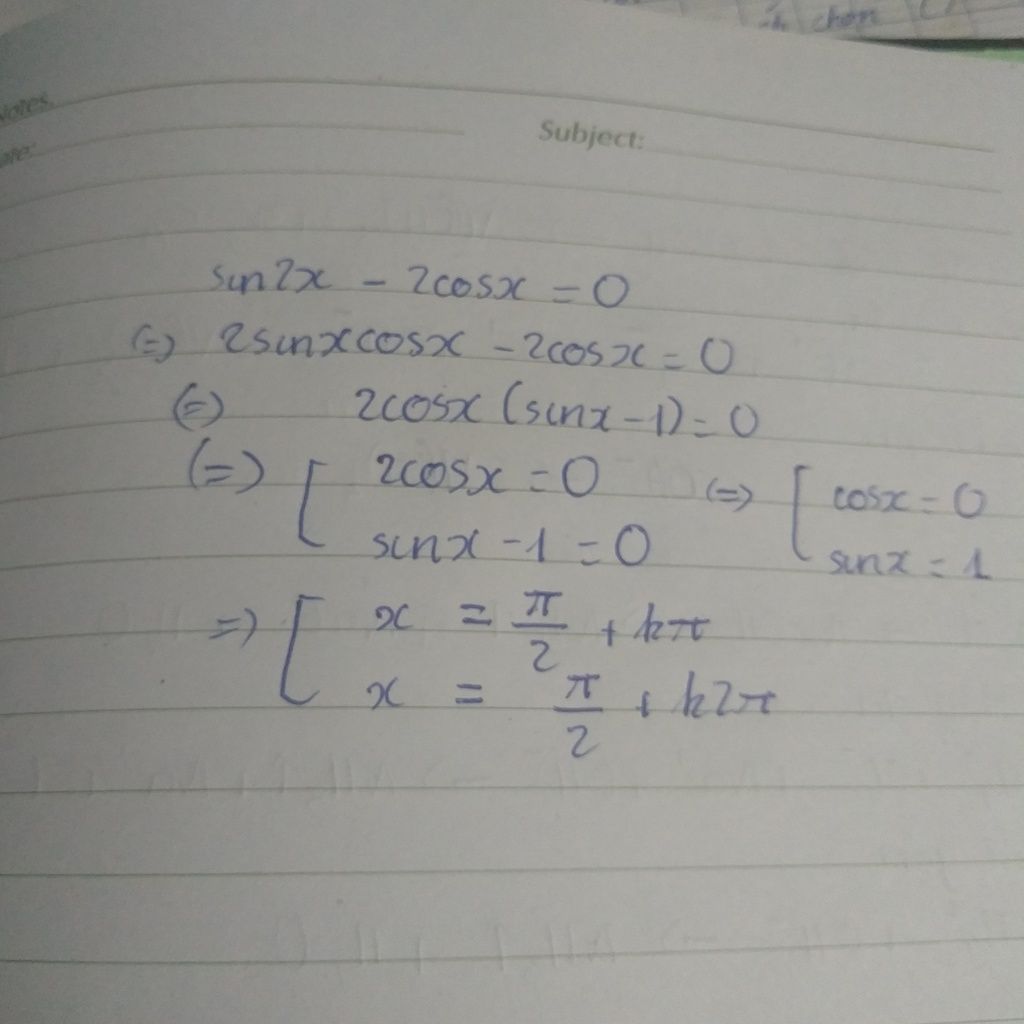 chọn
Notes
Subject:
sin2x - 2cosx = 0
(=) 2sinxcosx - 2cosx = 0
(=) 2cosx (sinx - 1) = 0
(=) [ 2cosx = 0 (=) [ cosx = 0
sinx - 1 = 0 sinx = 1
=) [ x = π/2 + kπ
x = π/2 + k2π